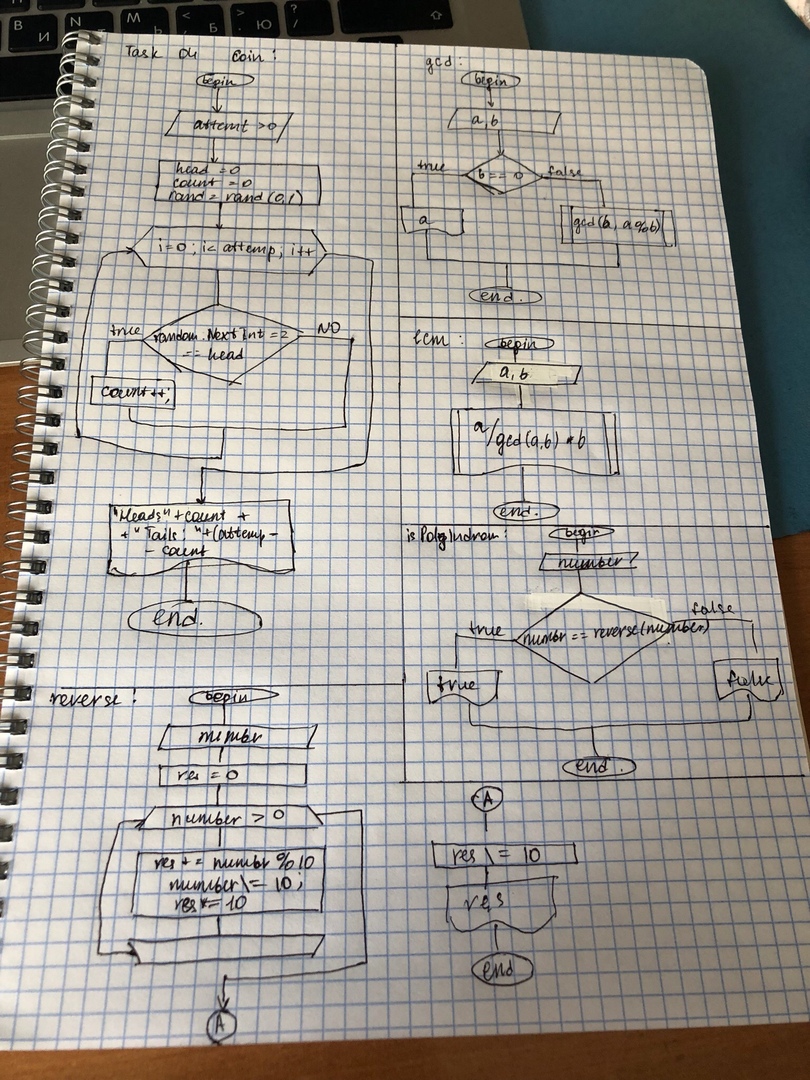 Task 04 coin:
begin
attemt >0
head =0
count =0
rand = rand (0,1)
i=0; i< attemp; i++
true
random.Next Int =2
== head
NO
count++;
"Heads" + count +
+ " Tails: "+(attemp -
- count
end.
gcd:
begin
a,b
true
b == 0
false
a
gcd(b, a%b)
end.
lcm:
begin
a,b
a/gcd(a,b) * b
end.
begin
number
true
numbr == reverse(number)
false
true
false
end.
reverse:
begin
numbr
res = 0
number > 0
res += number %10
number \= 10;
res *= 10
A
A
res \= 10
res
end